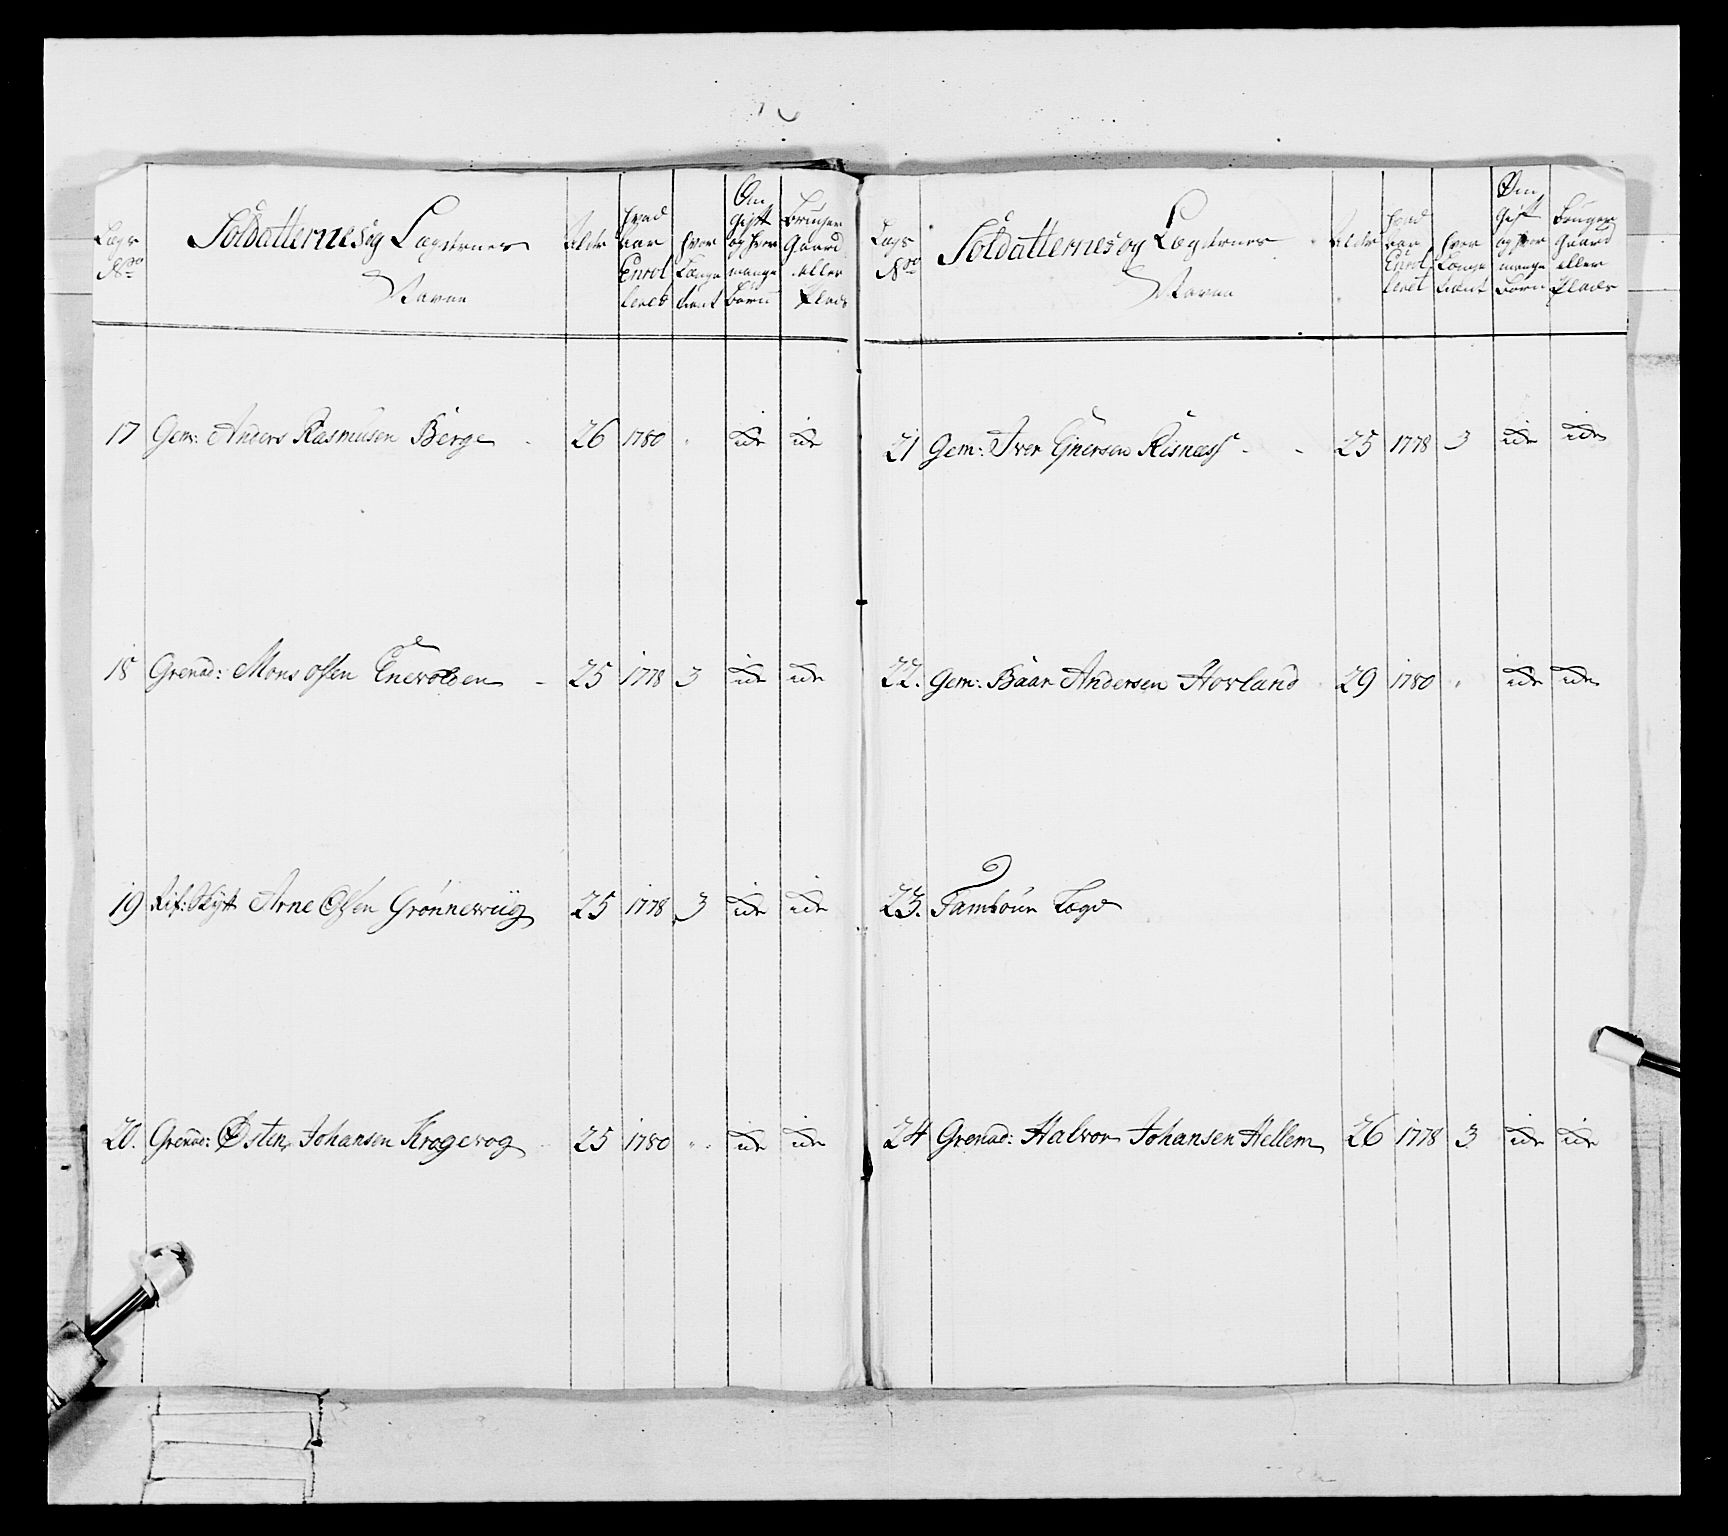 Lægs No
Soldatternes og Lægdernes Navne
Alder
hvad Aar Enrolleret
hvor Længe tient
Om Gift og hvor mange Børn
Bruger Gaard eller Plads
17 Gem: Anders Rasmusen Berge 26 1780 " idr idr
18 Grenad: Mons Olsen Enevolden - 25 1778 3 idr idr
19 Rif: Skytt Arne Olsen Grønnewiig 25 1778 3 idr idr
20. Grenad: Østen Johansen Krogevog 25 1780 " idr idr
Lægs No
Soldatternes og Lægdernes Navne
Alder
hvad Aar Enrolleret
hvor Længe tient
Om Gift og hvor mange Børn
Bruger Gaard eller Plads
21 Gem: Iver Ejnersen Risnæss - - 25 1778 3 idr idr
22. Gem: Baar Andersen Hovland 29 1780 " idr idr
23. Tambour Lægd
24 Grenad: Halvor Johansen Hellem 26 1778 3 idr idr